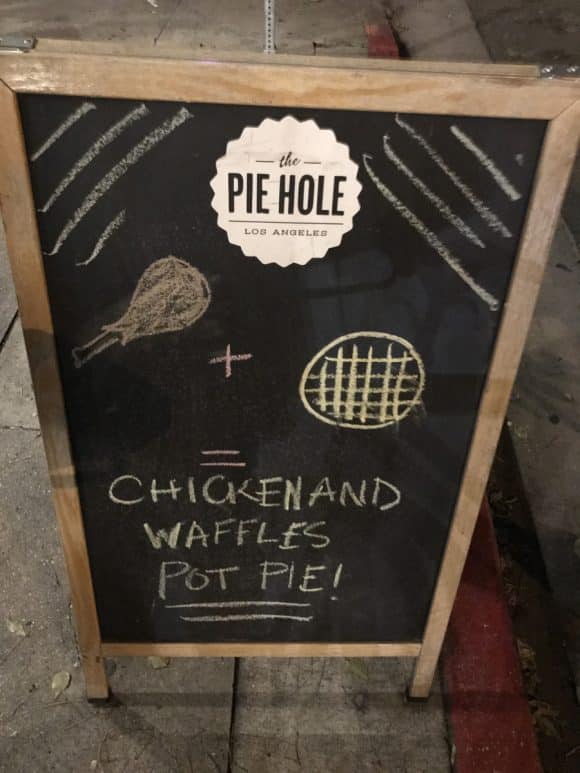 the
PIE HOLE
LOS ANGELES
+
=
CHICKEN AND
WAFFLES
POT PIE!